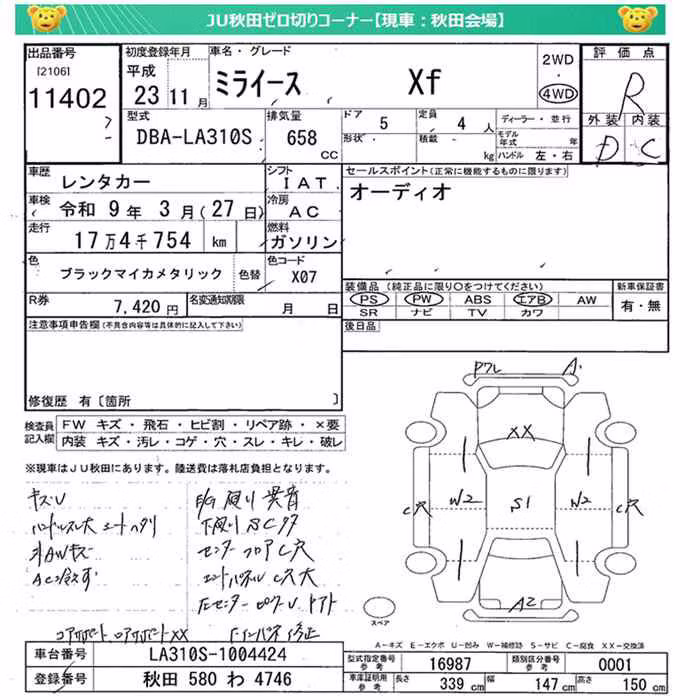 JU秋田ゼロ切りコーナー【現車：秋田会場】
出品番号 初度登録年月 車名・グレード 評価点
[2106]
11402
平成
23 11月
ミライース Xf
2WD
4WD
R
外装 内装
D C
型式 排気量 ドア 5 定員 4 人 ディーラー・並行
DBA-LA310S 658 CC
形状 積載 kg モデル年式 年
ハンドル 左・右
車歴 レンタカー シフト IAT
車検 令和 9年 3月(27日) 冷房 AC
走行 17万4千754 km 燃料 ガソリン
色 ブラックマイカメタリック 色替 色コード X07
R券 7,420円 名変通知期限 月 日
セールスポイント(正常に機能するものに限ります)
オーディオ
装備品(純正品に限り○をつけてください) 新車保証書
PS PW ABS エアB AW 有・無
SR ナビ TV カワ
後日品
注意事項申告欄(不具合内容等は具体的に記入して下さい)
修復歴 有〔箇所 〕
検査員記入欄
FW キズ・飛石・ヒビ割・リペア跡・×要
内装 キズ・汚レ・コゲ・穴・スレ・キレ・破レ
※現車はJU秋田にあります。陸送費は落札店負担となります。
キズU
ハンドルスレ大 シートヘタリ
外AWキズ
AC冷えず
E/G廻り異音
下廻りSCサ
センターフロアC穴
エンドパネルC穴大
コアサポート ロアサポートXX
Fインパネ修正
ワレ A
XX
W2 S1 W2
C穴 C穴
A2
スペア
A－キズ E－エクボ U－凹み W－補修跡 S－サビ C－腐食 XX－交換済
車台番号 LA310S-1004424
登録番号 秋田 580 わ 4746
型式指定番号参考 16987 類別区分番号参考 0001
車庫証明用参考 長さ 339 cm 幅 147 cm 高さ 150 cm